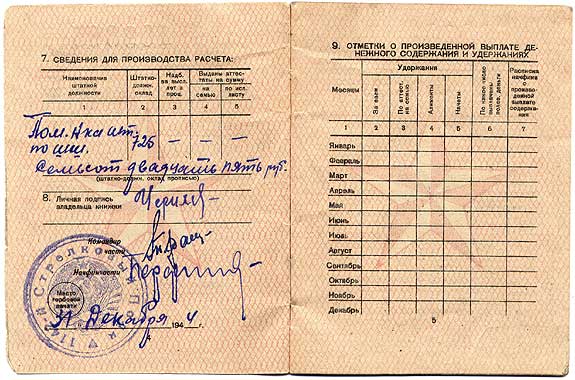 7. СВЕДЕНИЯ ДЛЯ ПРОИЗВОДСТВА РАСЧЕТА:
Наименование штатной должности
Штатно-должн. оклад
Надб. за высл. лет в проц.
Выданы аттестаты на сумму
на семью
по исл. листу
1 2 3 4 5
Пом. Нач шт. 725 — — —
по
Семьсот двадцать пять руб.
(штатно-должн. оклад прописью)
8. Личная подпись
владельца книжки
Командир
части
Начфинчасти
Место
гербовой
печати
31 Декабря 194 4 г.
4
1142-й Стрелковый Полк
9. ОТМЕТКИ О ПРОИЗВЕДЕННОЙ ВЫПЛАТЕ ДЕ-
НЕЖНОГО СОДЕРЖАНИЯ И УДЕРЖАНИЯХ
Месяцы
Удержания
За заем
По аттест. на семью
Алименты
Начеты
По какое число выплачены полев. деньги
Расписка начфина о производенной выплате содержания
1 2 3 4 5 6 7
Январь
Февраль
Март
Апрель
Май
Июнь
Июль
Август
Сентябрь
Октябрь
Ноябрь
Декабрь
5